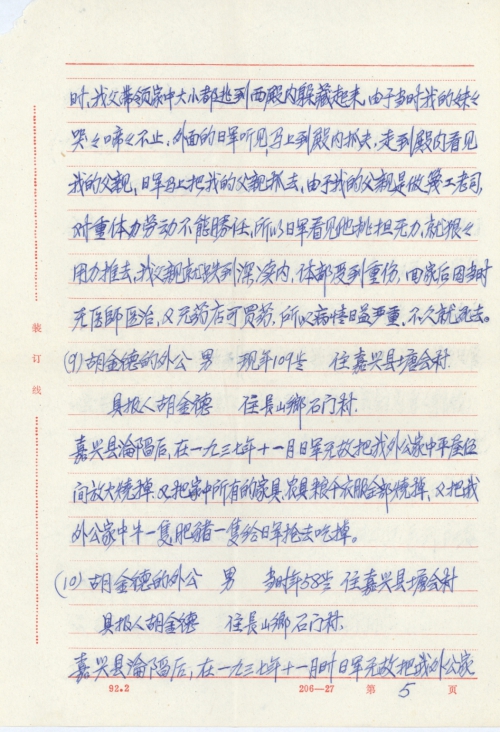 时,我父带领家中大小都逃到西殿内躲藏起来,由于当时我的妹々
哭々啼々不止,外面的日军听见,马上到殿内抓去,走到殿内看见
我的父亲,日军马上把我的父亲抓去,由于我的父亲是做篾工老司,
对重体力劳动不能勝任,所以日军看见他挑担无力,就狠々
用力推去,我父亲就跌到深沟内,体部受到重伤,回家后因当时
无医师医治,又无药店可買药,所以病情日益严重,不久就死去。
(9)胡金德的外公 男 现年109岁 住嘉兴县塘会村.
具报人胡金德 住長山鄉石门村.
嘉兴县淪陷后,在一九三七年十一月日军无故把我外公家中平屋伍
间放火燒掉,又把家中所有的家具,农具粮干衣服全部燒掉,又把我
外公家中牛一隻肥豬一隻给日军抢去吃掉。
(10)胡金德的外公 男 当时年58岁 住嘉兴县塘会村
具报人胡金德 住長山鄉石门村.
嘉兴县淪陷后,在一九三七年十一月时日军无故把我外公家
装订线
92.2 206—27 第 5 页